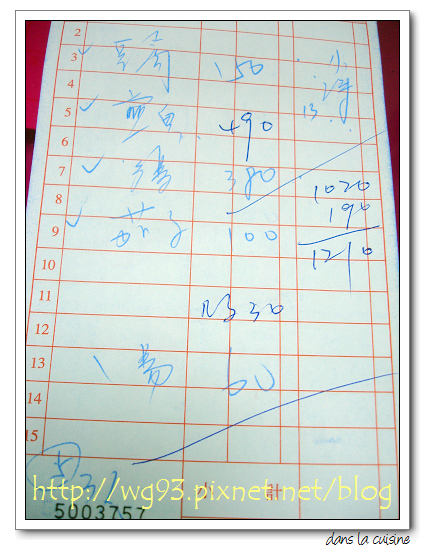 2
3 豆腐 150
4
5 煎魚 490
6
7 380 1020
8 190
9 茄子 100 1210
10
11 30
12
13 湯 60
14
15
小計
http://wg93.pixnet.net/blog
5003757
dans la cuisine